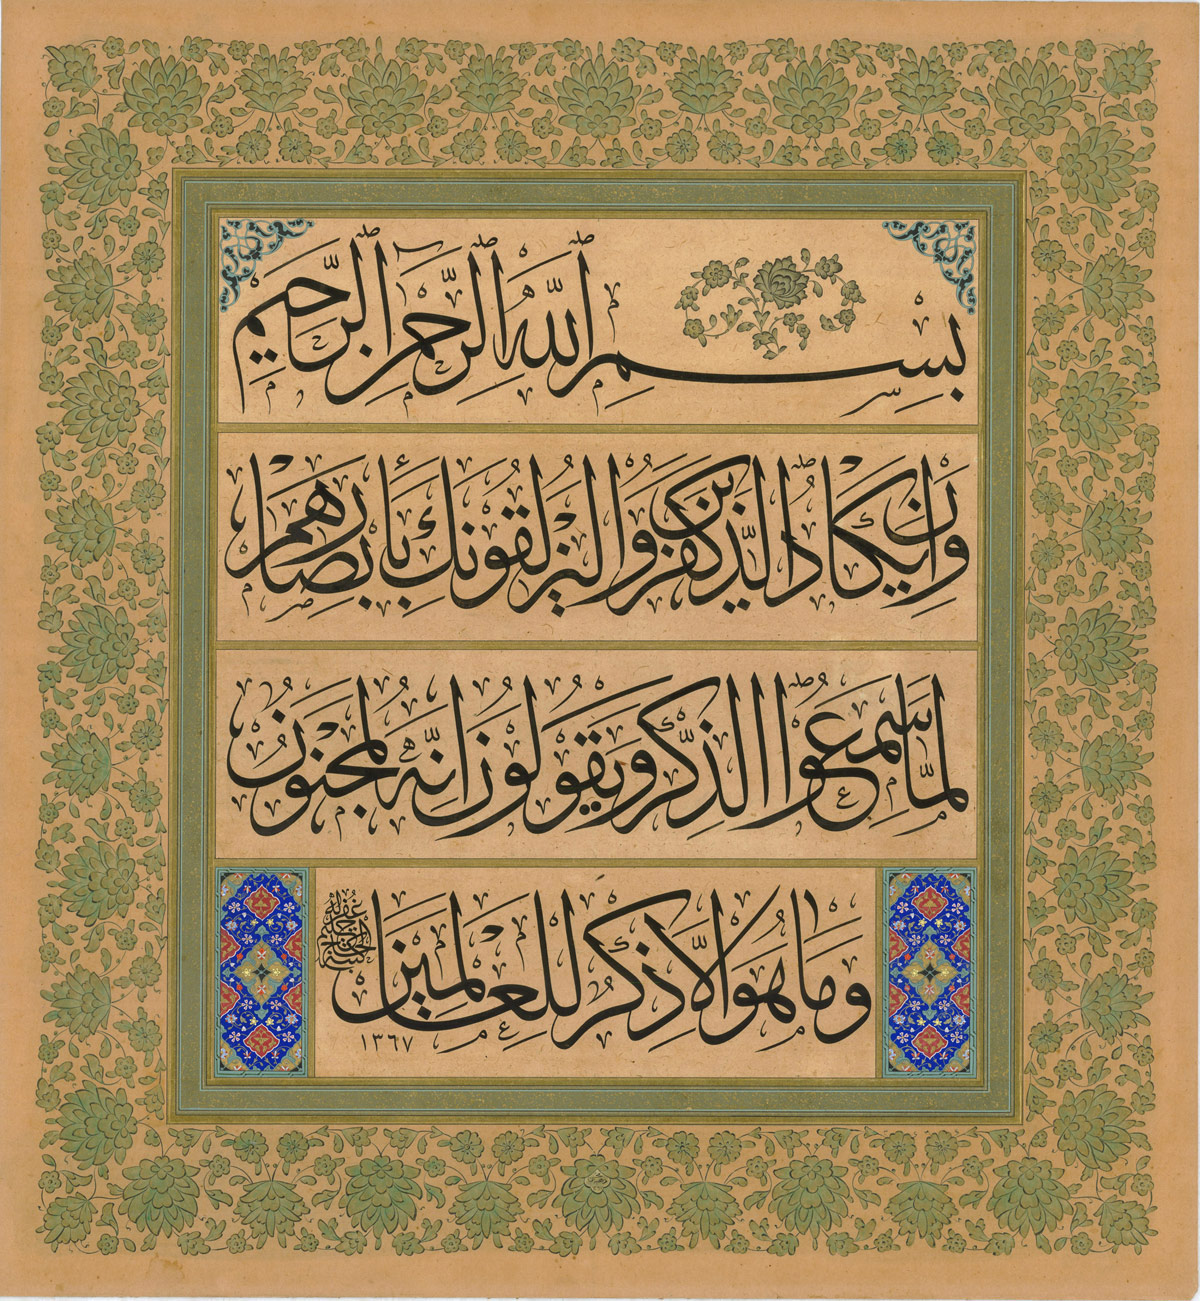 بِسْمِ اللّٰهِ الرَّحْمٰنِ الرَّحِيمِ
وَإِن يَكَادُ الَّذِينَ كَفَرُوا لَيُزْلِقُونَكَ بِأَبْصَارِهِمْ
لَمَّا سَمِعُوا الذِّكْرَ وَيَقُولُونَ إِنَّهُ لَمَجْنُونٌ
وَمَا هُوَ إِلَّا ذِكْرٌ لِلْعَالَمِينَ
١٣٦٧